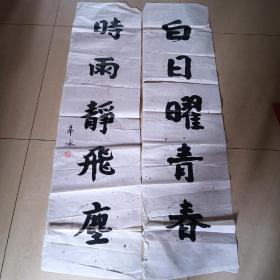 白日曜青春
時雨靜飛塵